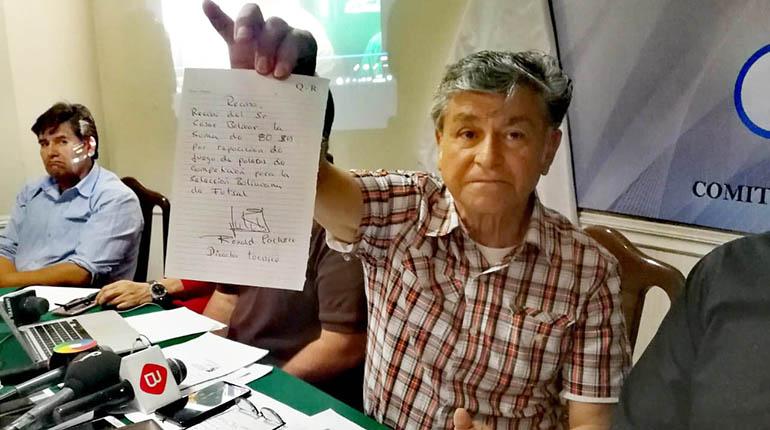 Q.R
Recibo.
Recibi del Sr
Cesar Bolivar la
suma de 80 Bs
por reposicion de
juego de poleras de
competencion para la
selección Boliviana
de Futsal
Ronald Pacheco
Director tecnico
COMIT